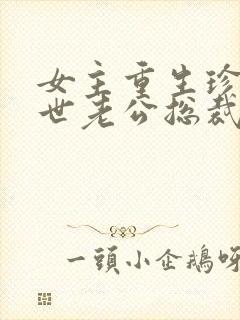 女主重生珍
世老公总裁
一頭小企鵝呀